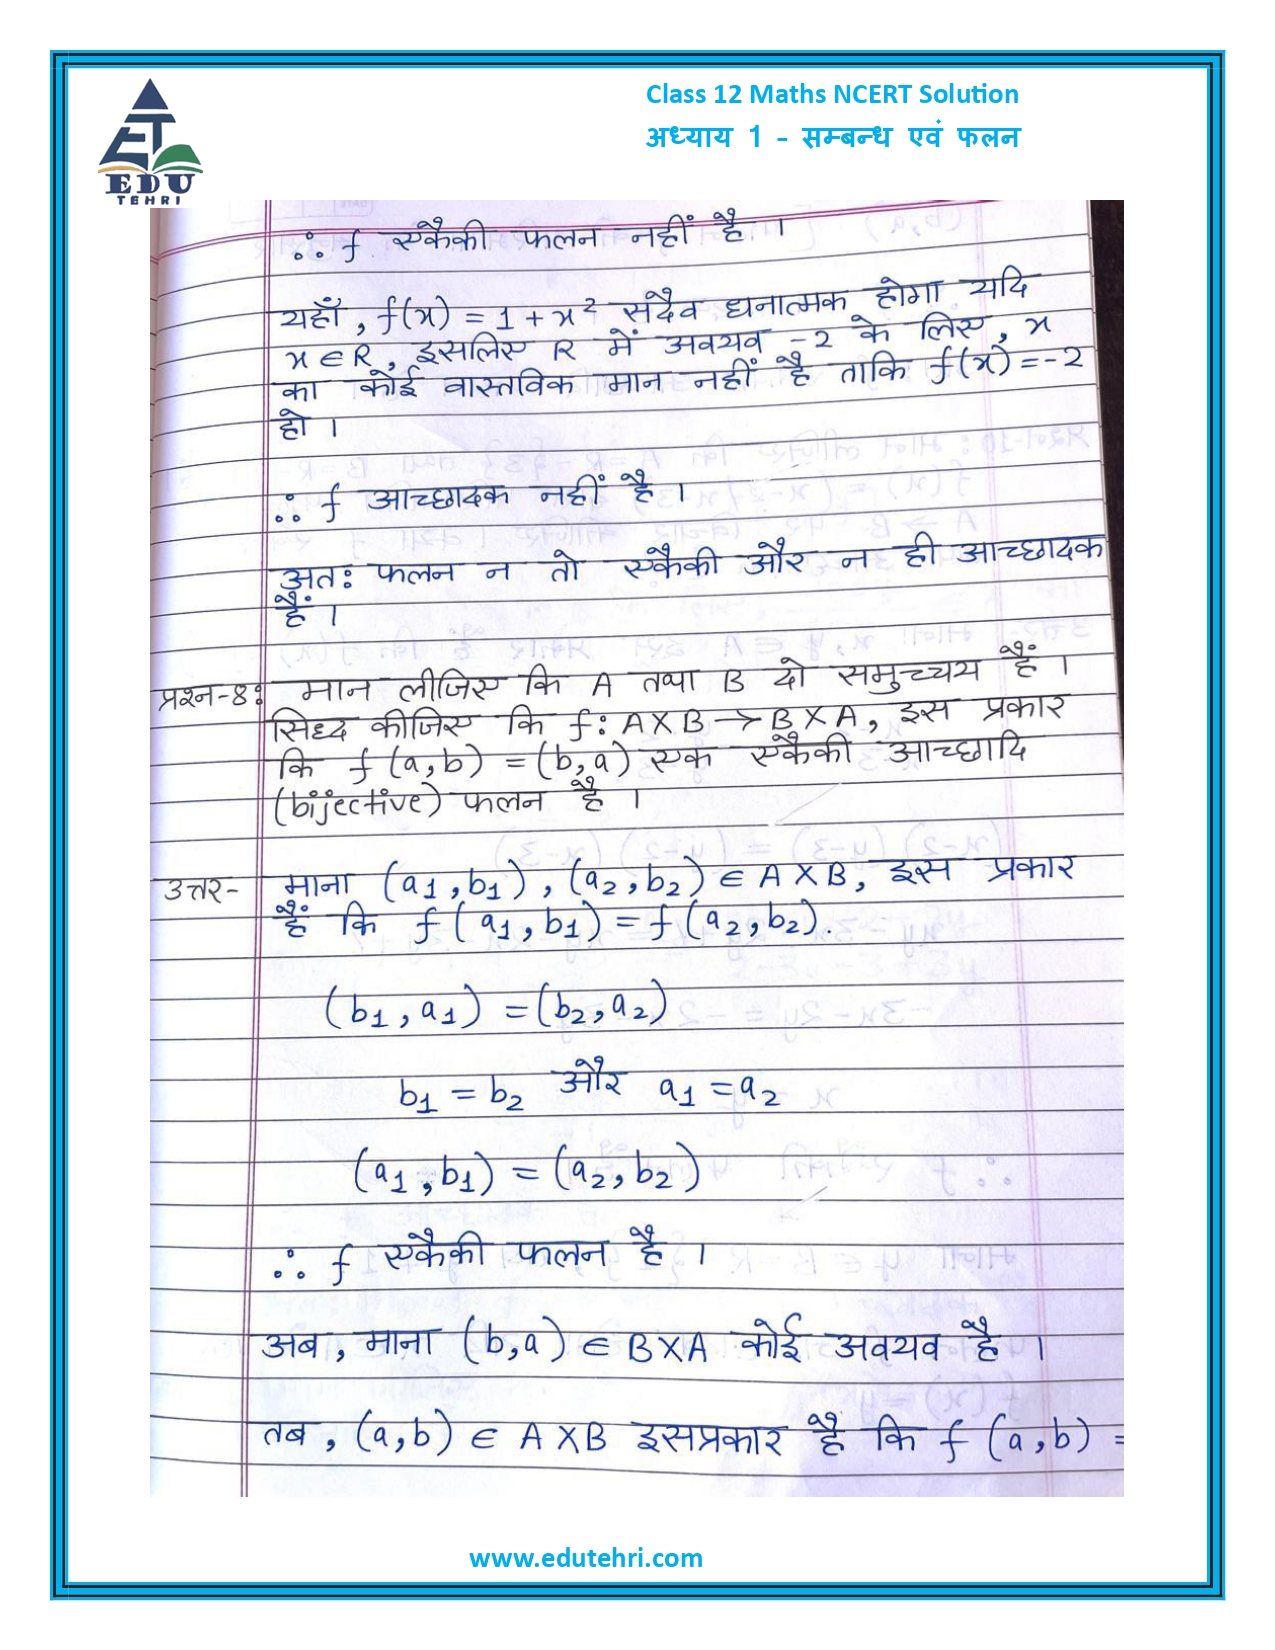 Class 12 Maths NCERT Solution
अध्याय 1 - सम्बन्ध एवं फलन
ET
EDU
TEHRI
∴ f एकैकी फलन नहीं है ।
यहाँ, f(x) = 1 + x² सदैव धनात्मक होगा यदि
x ∈ R, इसलिए R में अवयव -2 के लिए, x
का कोई वास्तविक मान नहीं है ताकि f(x) = -2
हो ।
∴ f आच्छादक नहीं है ।
अतः फलन न तो एकैकी और न ही आच्छादक
हैं ।
प्रश्न-8: मान लीजिए कि A तथा B दो समुच्चय हैं ।
सिध्द कीजिए कि f: A X B → B X A, इस प्रकार
कि f (a,b) = (b,a) एक एकैकी आच्छादि
(bijective) फलन है ।
उत्तर- माना (a₁,b₁), (a₂,b₂) ∈ A X B, इस प्रकार
हैं कि f (a₁,b₁) = f (a₂,b₂).
(b₁,a₁) = (b₂,a₂)
b₁ = b₂ और a₁ = a₂
(a₁,b₁) = (a₂,b₂)
∴ f एकैकी फलन है ।
अब, माना (b,a) ∈ B X A कोई अवयव है ।
तब, (a,b) ∈ A X B इसप्रकार है कि f (a,b) =
www.edutehri.com